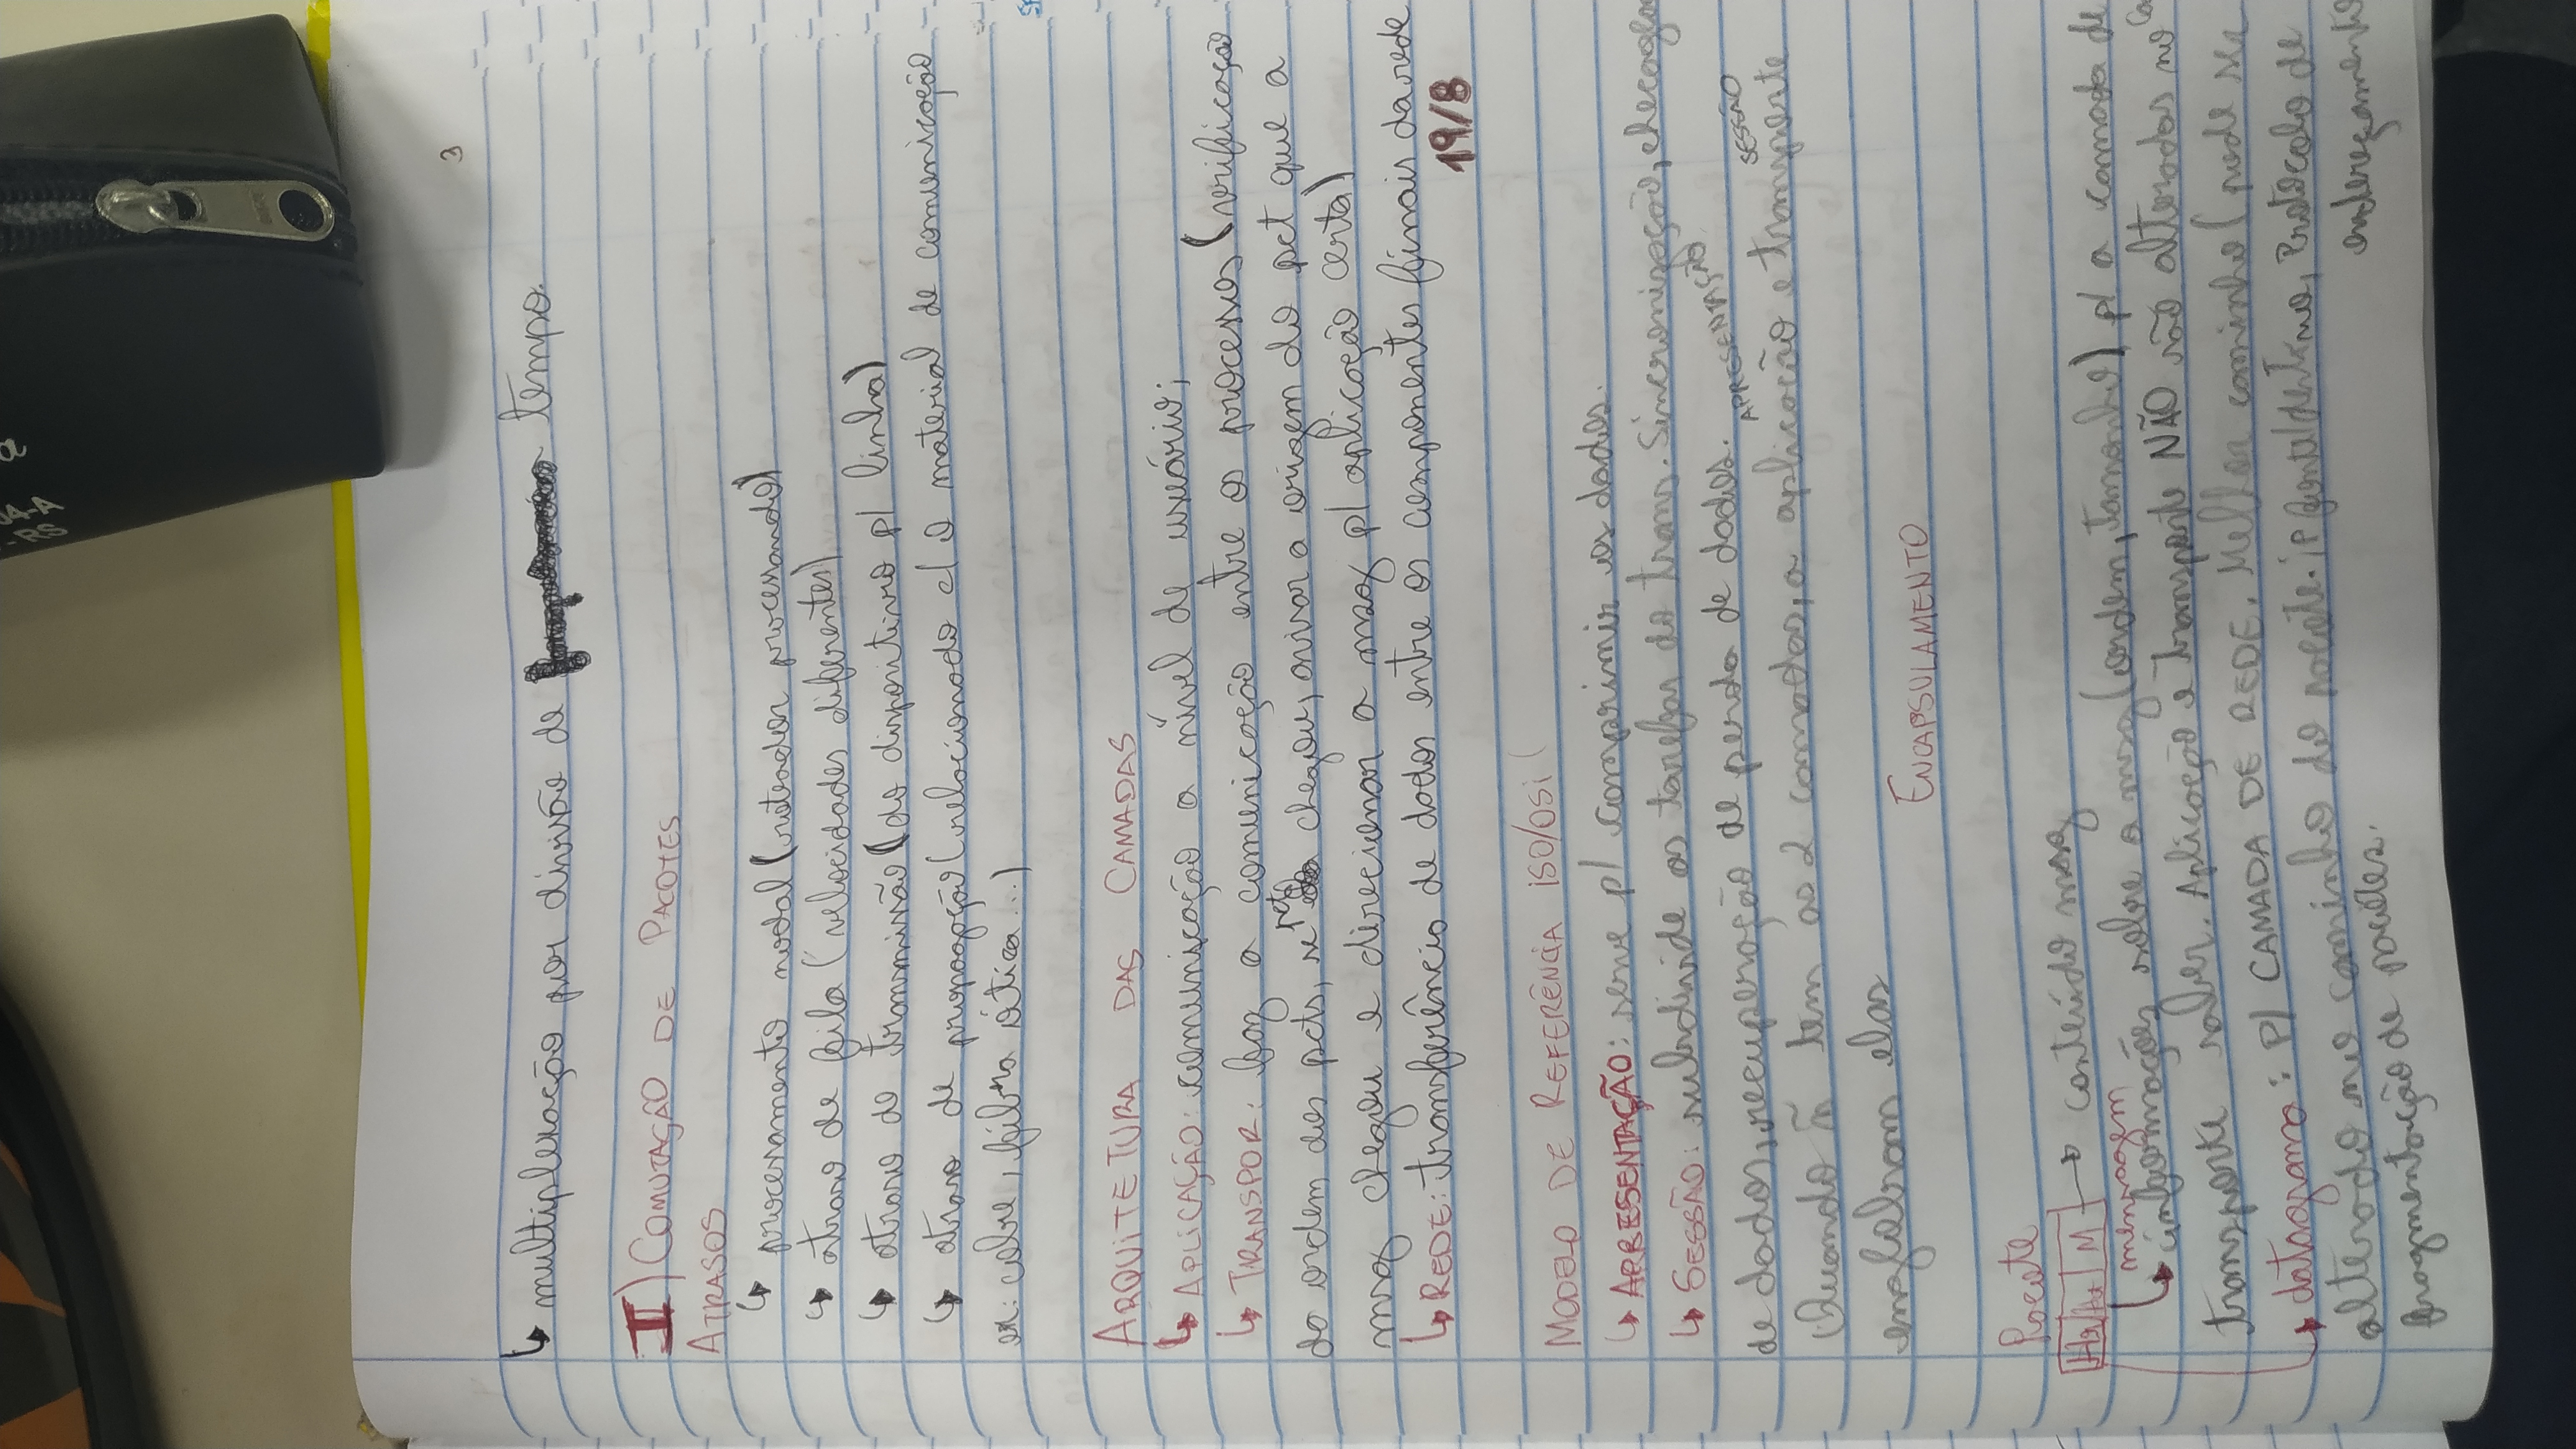 3
↳ multiplexação por divisão de tempo.
II) COMUTAÇÃO DE PACOTES
ATRASOS
↳ processamento nodal (roteador processando)
↳ atraso de fila (velocidades diferentes)
↳ atraso de transmissão (do dispositivo p/ linha)
↳ atraso de propagação (relacionado c/ o material de comunicação
ex: cobre, fibra ótica...)
ARQUITETURA DAS CAMADAS
↳ APLICAÇÃO: comunicação a nível de usuário;
↳ TRANSPOR: faz a comunicação entre os processos (verificação
da ordem dos pcts, se pct chegou, avisar a origem do pct que a
msg chegou e direcionar a msg p/ aplicação certa)
↳ REDE: transferência de dados entre os componentes finais da rede
19/8
MODELO DE REFERÊNCIA ISO/OSI (
↳ APRESENTAÇÃO: serve p/ comprimir os dados.
↳ SESSÃO: subdivide as tarefas do trans. Sincronização, checagem
de dados, recuperação de perda de dados.
APRESENTAÇÃO SESSÃO
Quando ñ tem as 2 camadas, a aplicação e transporte
englobam elas
ENCAPSULAMENTO
Pacote
M → conteúdo msg
mensagem
↳ informações sobre a msg (ordem, tamanho) p/ a camada de
transporte saber. Aplicação e transporte NÃO são alterados no
↳ datagrama: P/ CAMADA DE REDE. Melhor caminho (pode ser
alterado no caminho do pacote. iP fonte/destino, Protocolo de
endereçamento
fragmentação de pacotes.